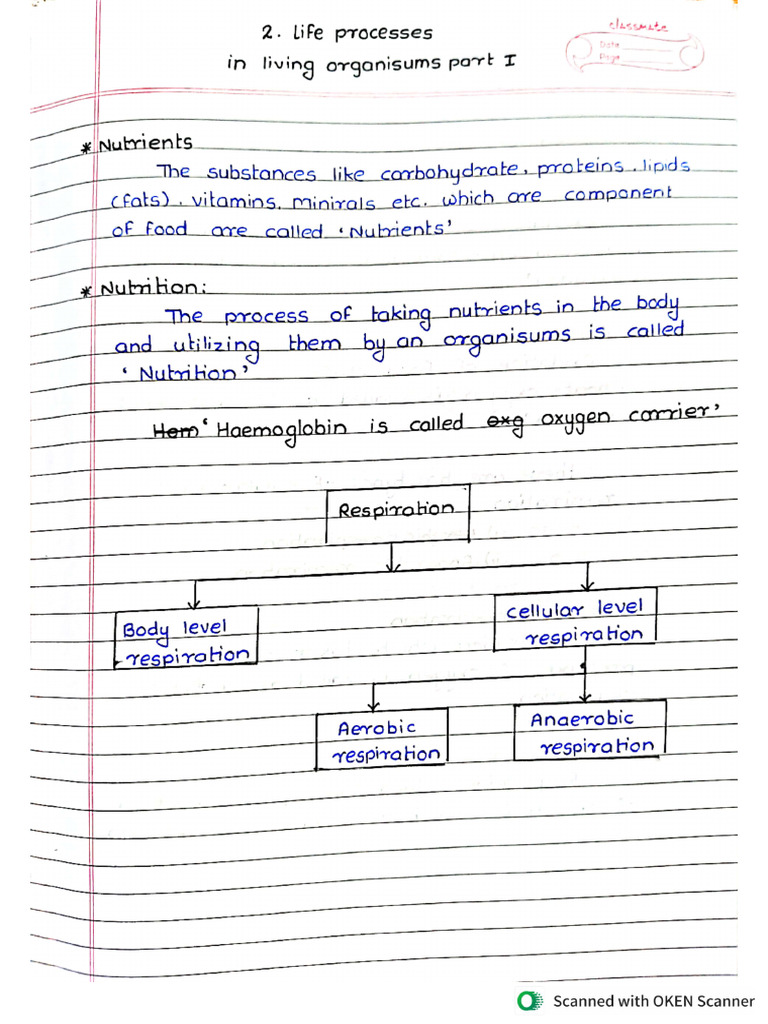 2. Life processes
in living organisums part I
classmate
Date
Page
* Nutrients
The substances like carbohydrate, proteins, lipids
(fats), vitamins, minirals etc. which are component
of food are called 'Nutrients'
* Nutrition:
The process of taking nutrients in the body
and utilizing them by an organisums is called
'Nutrition'
Hem 'Haemoglobin is called oxg oxygen carrier'
Respiration
Body level
respiration
cellular level
respiration
Aerobic
respiration
Anaerobic
respiration
Scanned with OKEN Scanner